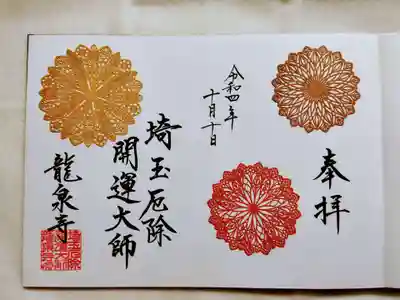 奉拝
令和四年
十月十日
埼玉厄除
開運大師
龍泉寺